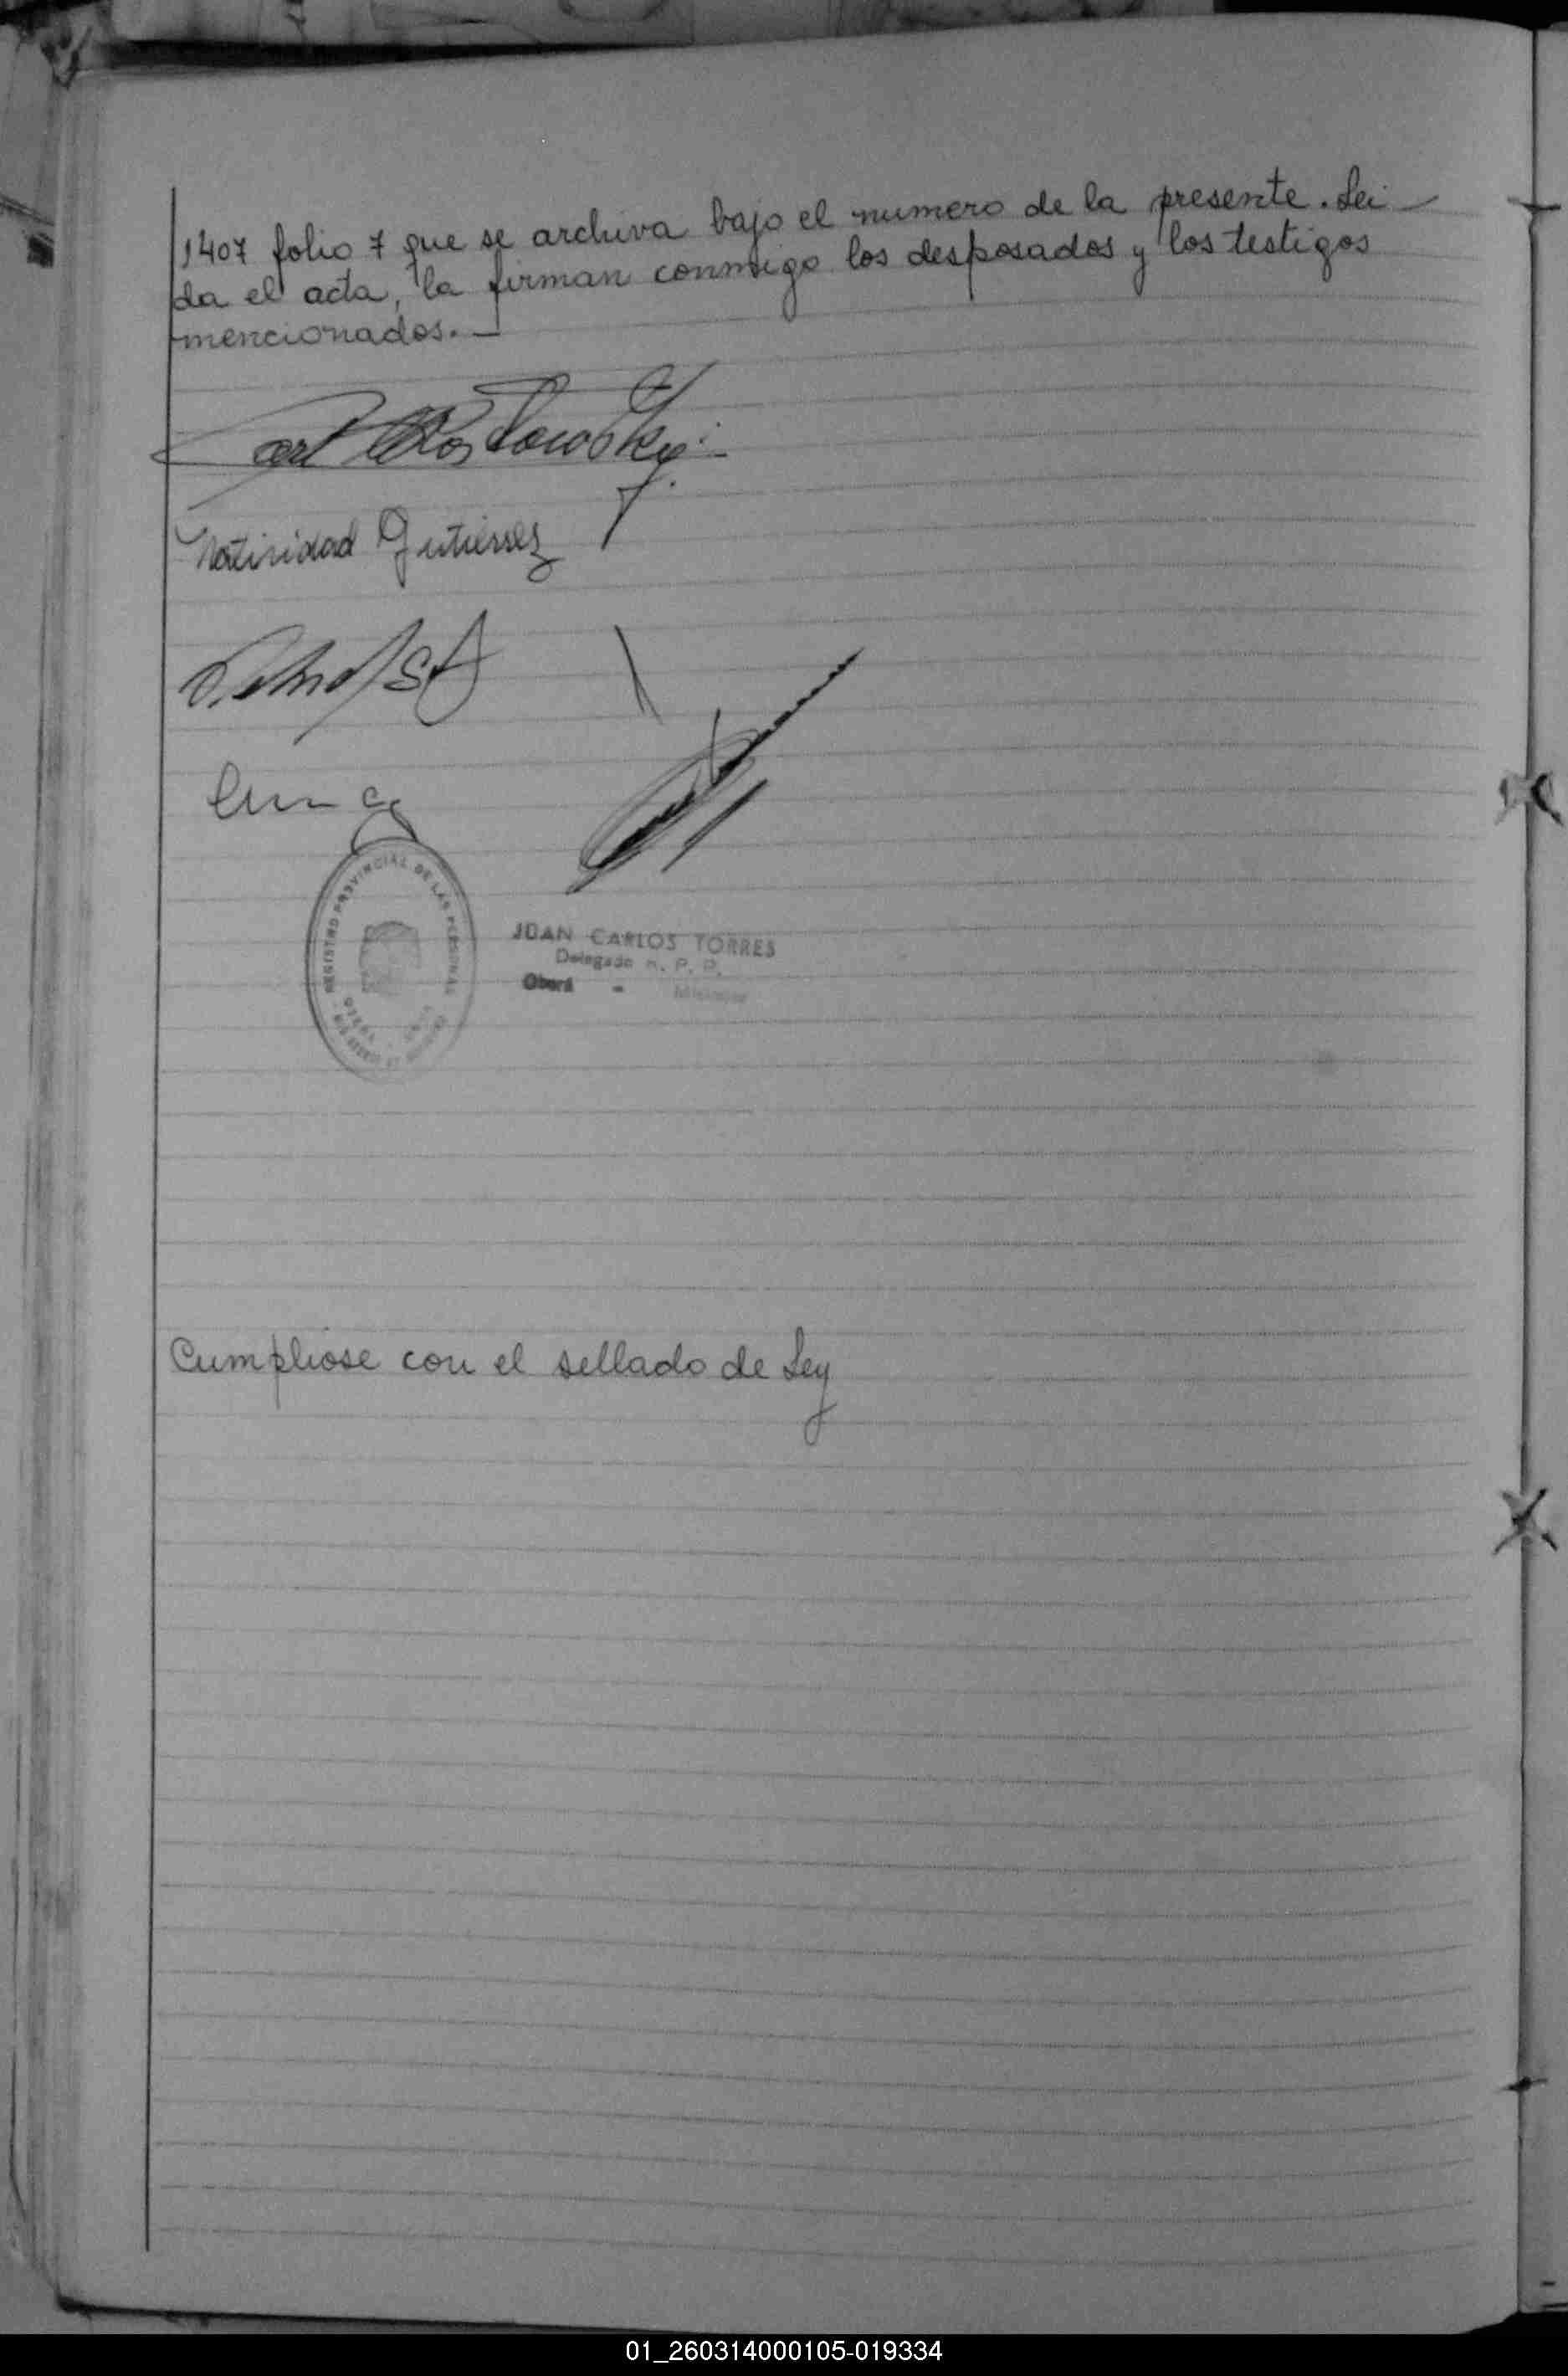 1407 folio 7 que se archiva bajo el numero de la presente. Lei
da el acta, la firman conmigo los desposados y los testigos
mencionados.—
Natividad Gutierrez
REGISTRO PROVINCIAL DE LAS PERSONAS
JUAN CARLOS TORRES
Delegado R. P. P.
Oberá - Misiones
Cumpliose con el sellado de Ley
01_260314000105-019334